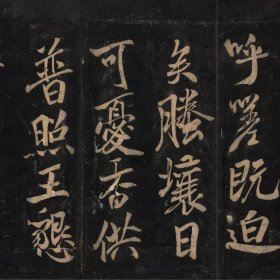 呼嗟既迫
矣塍壤日
可憂香供
普照王懇